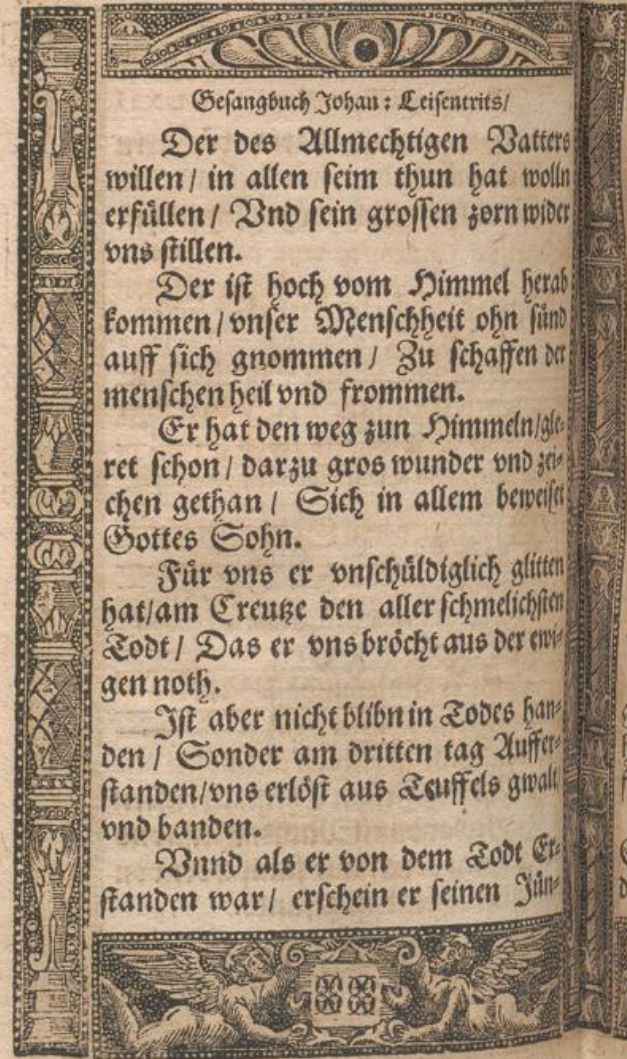 Gesangbuch Johan: Leisentrits/
Der des Allmechtigen Vatters
willen / in allen seim thun hat wolln
erfüllen / Vnd sein grossen zorn wider
vns stillen.
Der ist hoch vom Himmel herab
kommen / vnser Menschheit ohn sünd
auff sich gnommen / Zu schaffen der
menschen heil vnd frommen.
Er hat den weg zun Himmeln / gle-
ret schon / darzu gros wunder vnd zei-
chen gethan / Sich in allem beweiset
Gottes Sohn.
Für vns er vnschüldiglich glitten
hat / am Creutze den aller schmelichsten
Todt / Das er vns bröcht aus der ewi-
gen noth.
Ist aber nicht blibn in Todes han-
den / Sonder am dritten tag Auffer-
standen / vns erlöst aus Teuffels gwalt
vnd banden.
Vnnd als er von dem Todt Er-
standen war / erschein er seinen Jün-